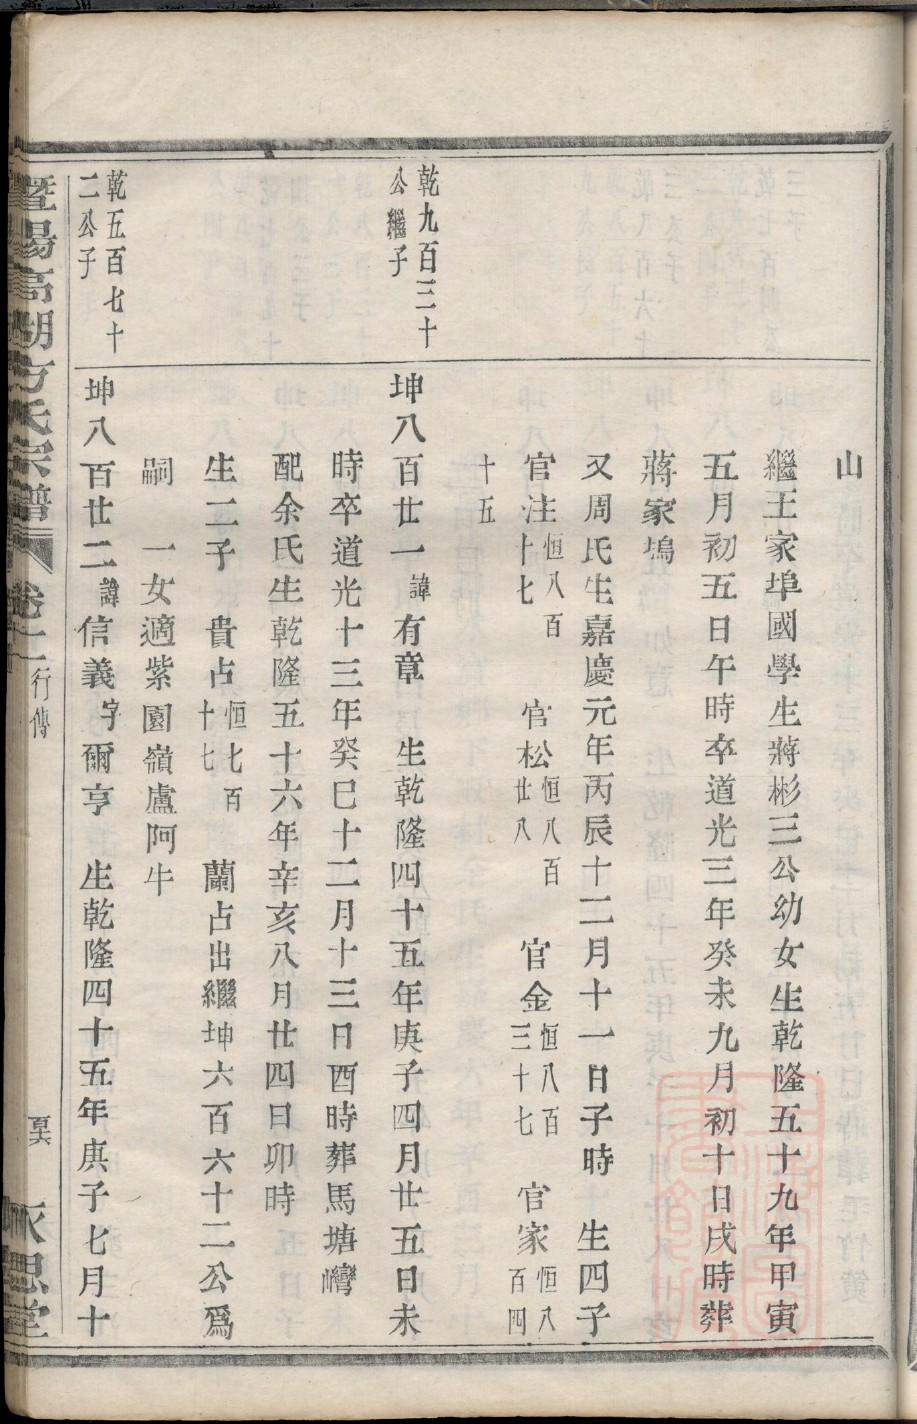 山
繼王家埠國學生蔣彬三公幼女生乾隆五十九年甲寅
五月初五日午時卒道光三年癸未九月初十日戌時葬
蔣家塢
又周氏生嘉慶元年丙辰十二月十一日子時 生四子
官注恒八百十七 官松恒八百廿八 官金恒八百三十七 官家恒八百四
十五
乾九百三十
公繼子
坤八百廿一諱有章 生乾隆四十五年庚子四月廿五日未
時卒道光十三年癸巳十二月十三日酉時葬馬塘灣
配余氏生乾隆五十六年辛亥八月廿四日卯時
生二子 貴占恒七百十七 蘭占出繼坤六百六十二公爲
嗣 一女適紫園嶺盧阿牛
乾五百七十
二公子
坤八百廿二諱信義字爾亨 生乾隆四十五年庚子七月十
暨陽高湖方氏宗譜 卷十二 行傳 永思堂